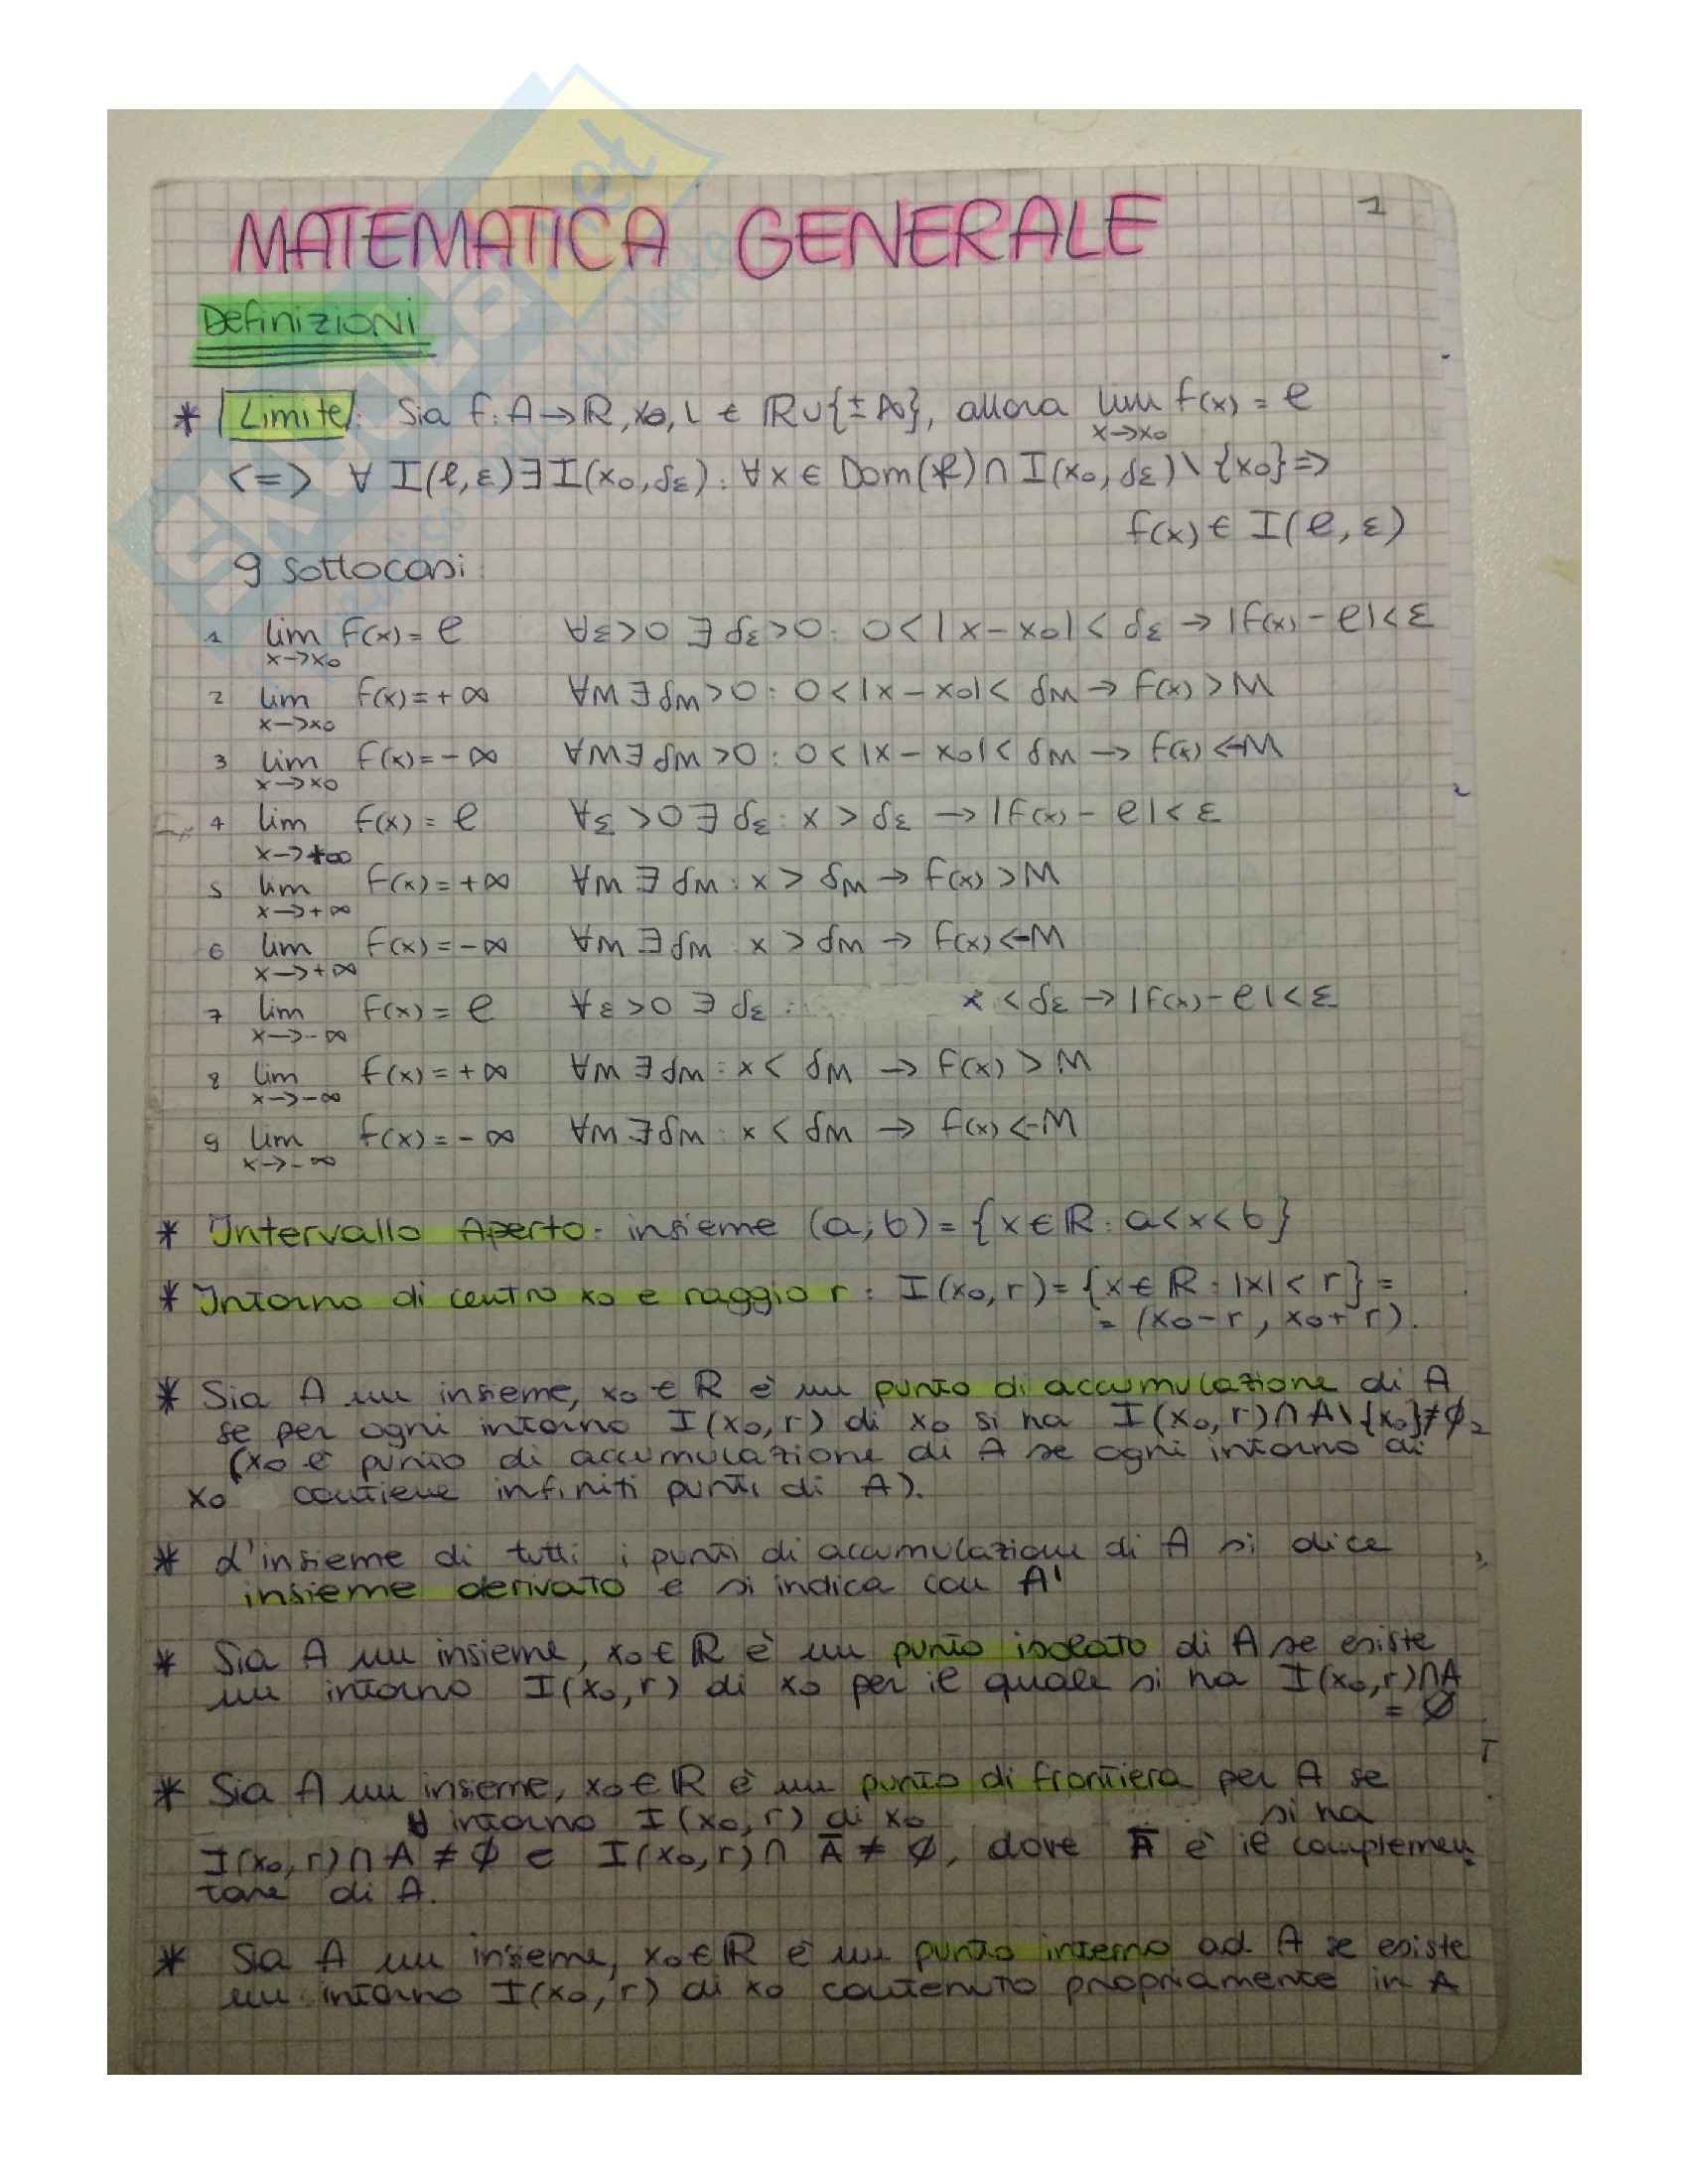 1
MATEMATICA GENERALE
Definizioni
* Limite: Sia f: A→R, x₀, L ∈ R∪{±∞}, allora lim f(x) = l
x→x₀
<=> ∀ I(l,ε) ∃ I(x₀,δε): ∀x ∈ Dom(f) ∩ I(x₀,δε) \ {x₀} =>
f(x) ∈ I(l,ε)
9 sottocasi
1 lim f(x) = l ∀ε>0 ∃ δε>0: 0<|x-x₀|< δε → |f(x)-l|<ε
x→x₀
2 lim f(x) = +∞ ∀M ∃ δM>0: 0<|x-x₀|< δM → f(x) >M
x→x₀
3 lim f(x) = -∞ ∀M ∃ δM>0: 0<|x-x₀|< δM → f(x) <-M
x→x₀
4 lim f(x) = l ∀ε >0 ∃ δε: x > δε → |f(x)-l|<ε
x→+∞
5 lim f(x) = +∞ ∀M ∃ δM: x > δM → f(x) >M
x→+∞
6 lim f(x) = -∞ ∀M ∃ δM x > δM → f(x) <-M
x→+∞
7 lim f(x) = l ∀ε>0 ∃ δε: x < δε → |f(x)-l|<ε
x→-∞
8 lim f(x) = +∞ ∀M ∃ δM: x < δM → f(x) > M
x→-∞
9 lim f(x) = -∞ ∀M ∃ δM: x < δM → f(x) <-M
x→-∞
* Intervallo Aperto: insieme (a;b) = {x∈R: a<x<b}
* Intorno di centro x₀ e raggio r: I(x₀,r) = {x∈R: |x|< r} =
= (x₀-r, x₀+r).
* Sia A un insieme, x₀∈R è un punto di accumulazione di A
se per ogni intorno I(x₀,r) di x₀ si ha I(x₀,r)∩A\{x₀}≠∅
(x₀ è punto di accumulazione di A se ogni intorno di
x₀ contiene infiniti punti di A).
* L'insieme di tutti i punti di accumulazione di A si dice
insieme derivato e si indica con A'
* Sia A un insieme, x₀∈R è un punto isolato di A se esiste
un intorno I(x₀,r) di x₀ per il quale si ha I(x₀,r)∩A
= ∅
* Sia A un insieme, x₀∈R è un punto di frontiera per A se
∀ intorno I(x₀,r) di x₀ si ha
I(x₀,r)∩A≠∅ e I(x₀,r)∩Ā≠∅, dove Ā è il complemen
tare di A.
* Sia A un insieme, x₀∈R è un punto interno ad A se esiste
un intorno I(x₀,r) di x₀ contenuto propriamente in A